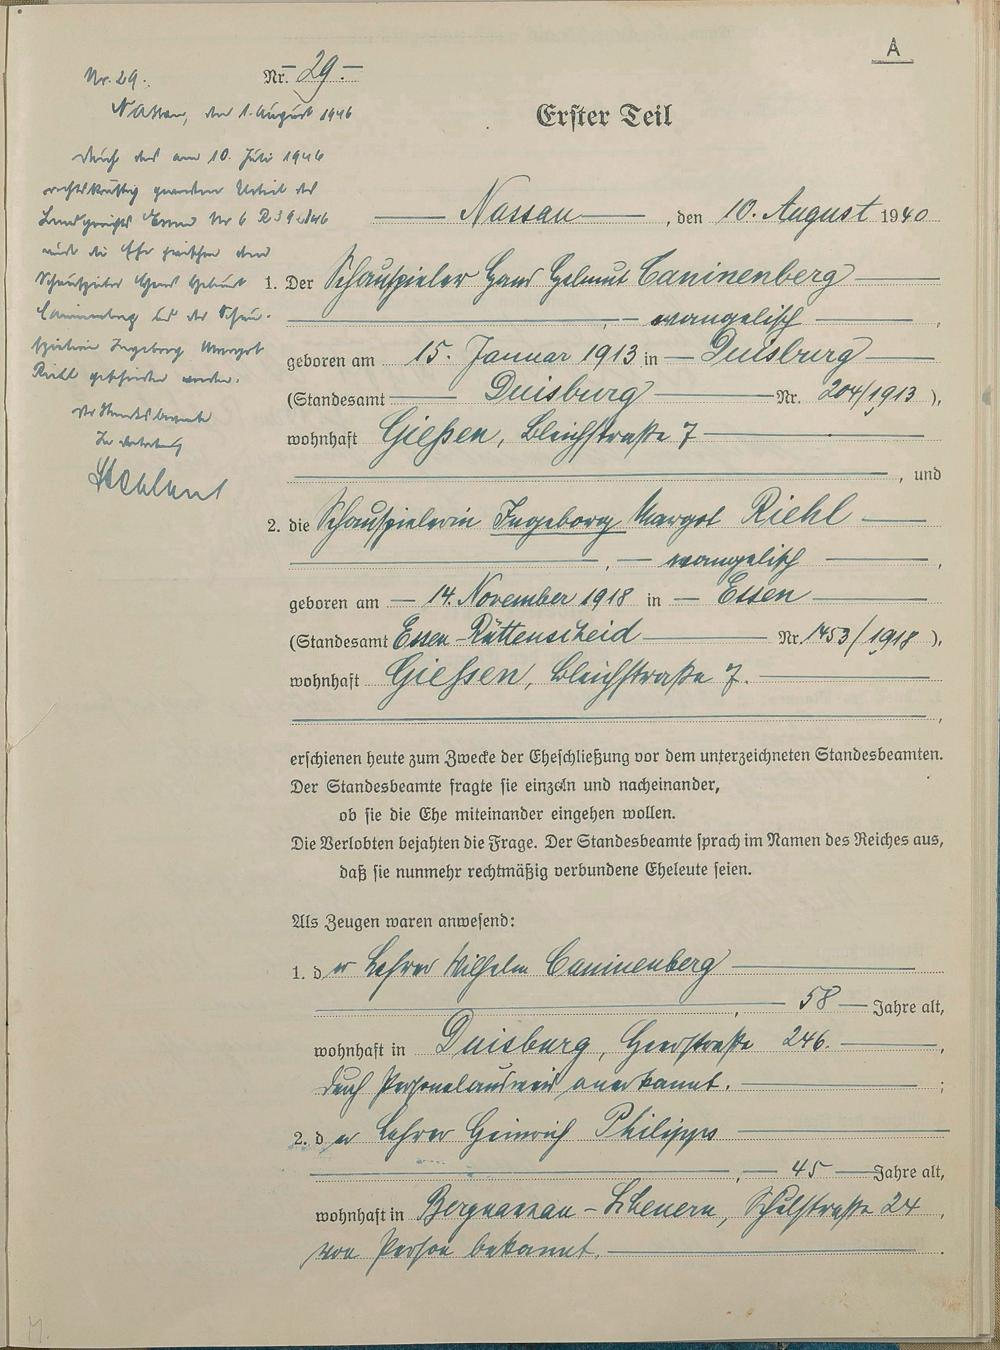 A
Nr. 29.-
Erster Teil
Nr. 29.
Nassau, den 1. August 1946
Durch das am 10. Juli 1946
rechtskräftig gewordene Urteil des
Landgerichts Nr 6 R 39/46
wurde die Ehe zwischen dem
Schauspieler Hans Helmut
Caninenberg und der Schau-
spielerin Ingeborg Margot
Riehl geschieden worden.
Der Standesbeamte
In Vertretung
Nassau, den 10. August 1940
1. Der Schauspieler Hans Helmut Caninenberg
, evangelisch,
geboren am 15. Januar 1913 in Duisburg
(Standesamt Duisburg Nr. 204/1913),
wohnhaft Gießen, Bleichstraße 7
, und
2. die Schauspielerin Ingeborg Margot Riehl
, evangelisch,
geboren am 14. November 1918 in Essen
(Standesamt Essen-Rüttenscheid Nr. 1453/1918),
wohnhaft Gießen, Bleichstraße 7.
,
erschienen heute zum Zwecke der Eheschließung vor dem unterzeichneten Standesbeamten.
Der Standesbeamte fragte sie einzeln und nacheinander,
ob sie die Ehe miteinander eingehen wollen.
Die Verlobten bejahten die Frage. Der Standesbeamte sprach im Namen des Reiches aus,
daß sie nunmehr rechtmäßig verbundene Eheleute seien.
Als Zeugen waren anwesend:
1. der Lehrer Wilhelm Caninenberg
, 58 Jahre alt,
wohnhaft in Duisburg, Heerstraße 246.,
durch Personalausweis anerkannt.;
2. der Lehrer Heinrich Philipps
, 45 Jahre alt,
wohnhaft in Bergnassau-Scheuern, Schulstraße 24,
von Person bekannt.